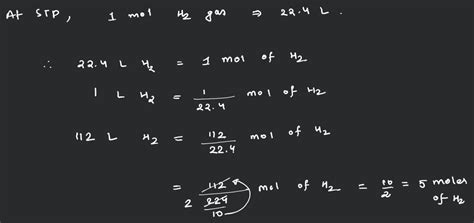 At STP, 1 mol H2 gas ⇒ 22.4 L.
∴ 22.4 L H2 = 1 mol of H2
1 L H2 = 1/22.4 mol of H2
112 L H2 = 112/22.4 mol of H2
= 112/(224/10) mol of H2 = 10/2 = 5 moles of H2
2